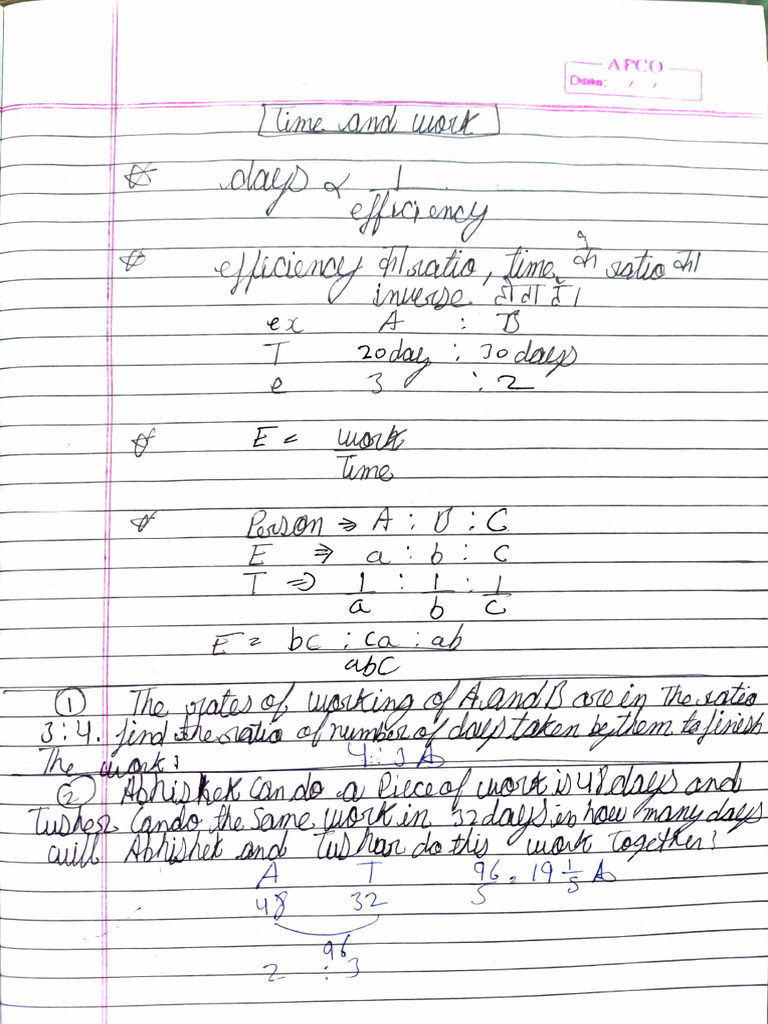 APCO
Date: / /
Time and work
days ∝ 1
efficiency
efficiency का ratio, time के ratio का
inverse होगा है।
ex A : B
T 20day : 30 days
e 3 : 2
E = work
Time
Person ⇒ A : B : C
E ⇒ a : b : c
T ⇒ 1 : 1 : 1
a b c
E = bc : ca : ab
abc
① The rates of working of A and B are in the ratio
3 : 4. find the ratio of number of days taken by them to finish
The work?
4 : 3 A
② Abhishek can do a Piece of work is 48 days and
Tusher Can do the same work in 32 days in how many days
will Abhishek and Tushar do this work together?
A T 96 = 19 1/5 A
48 32 5
96
2 : 3